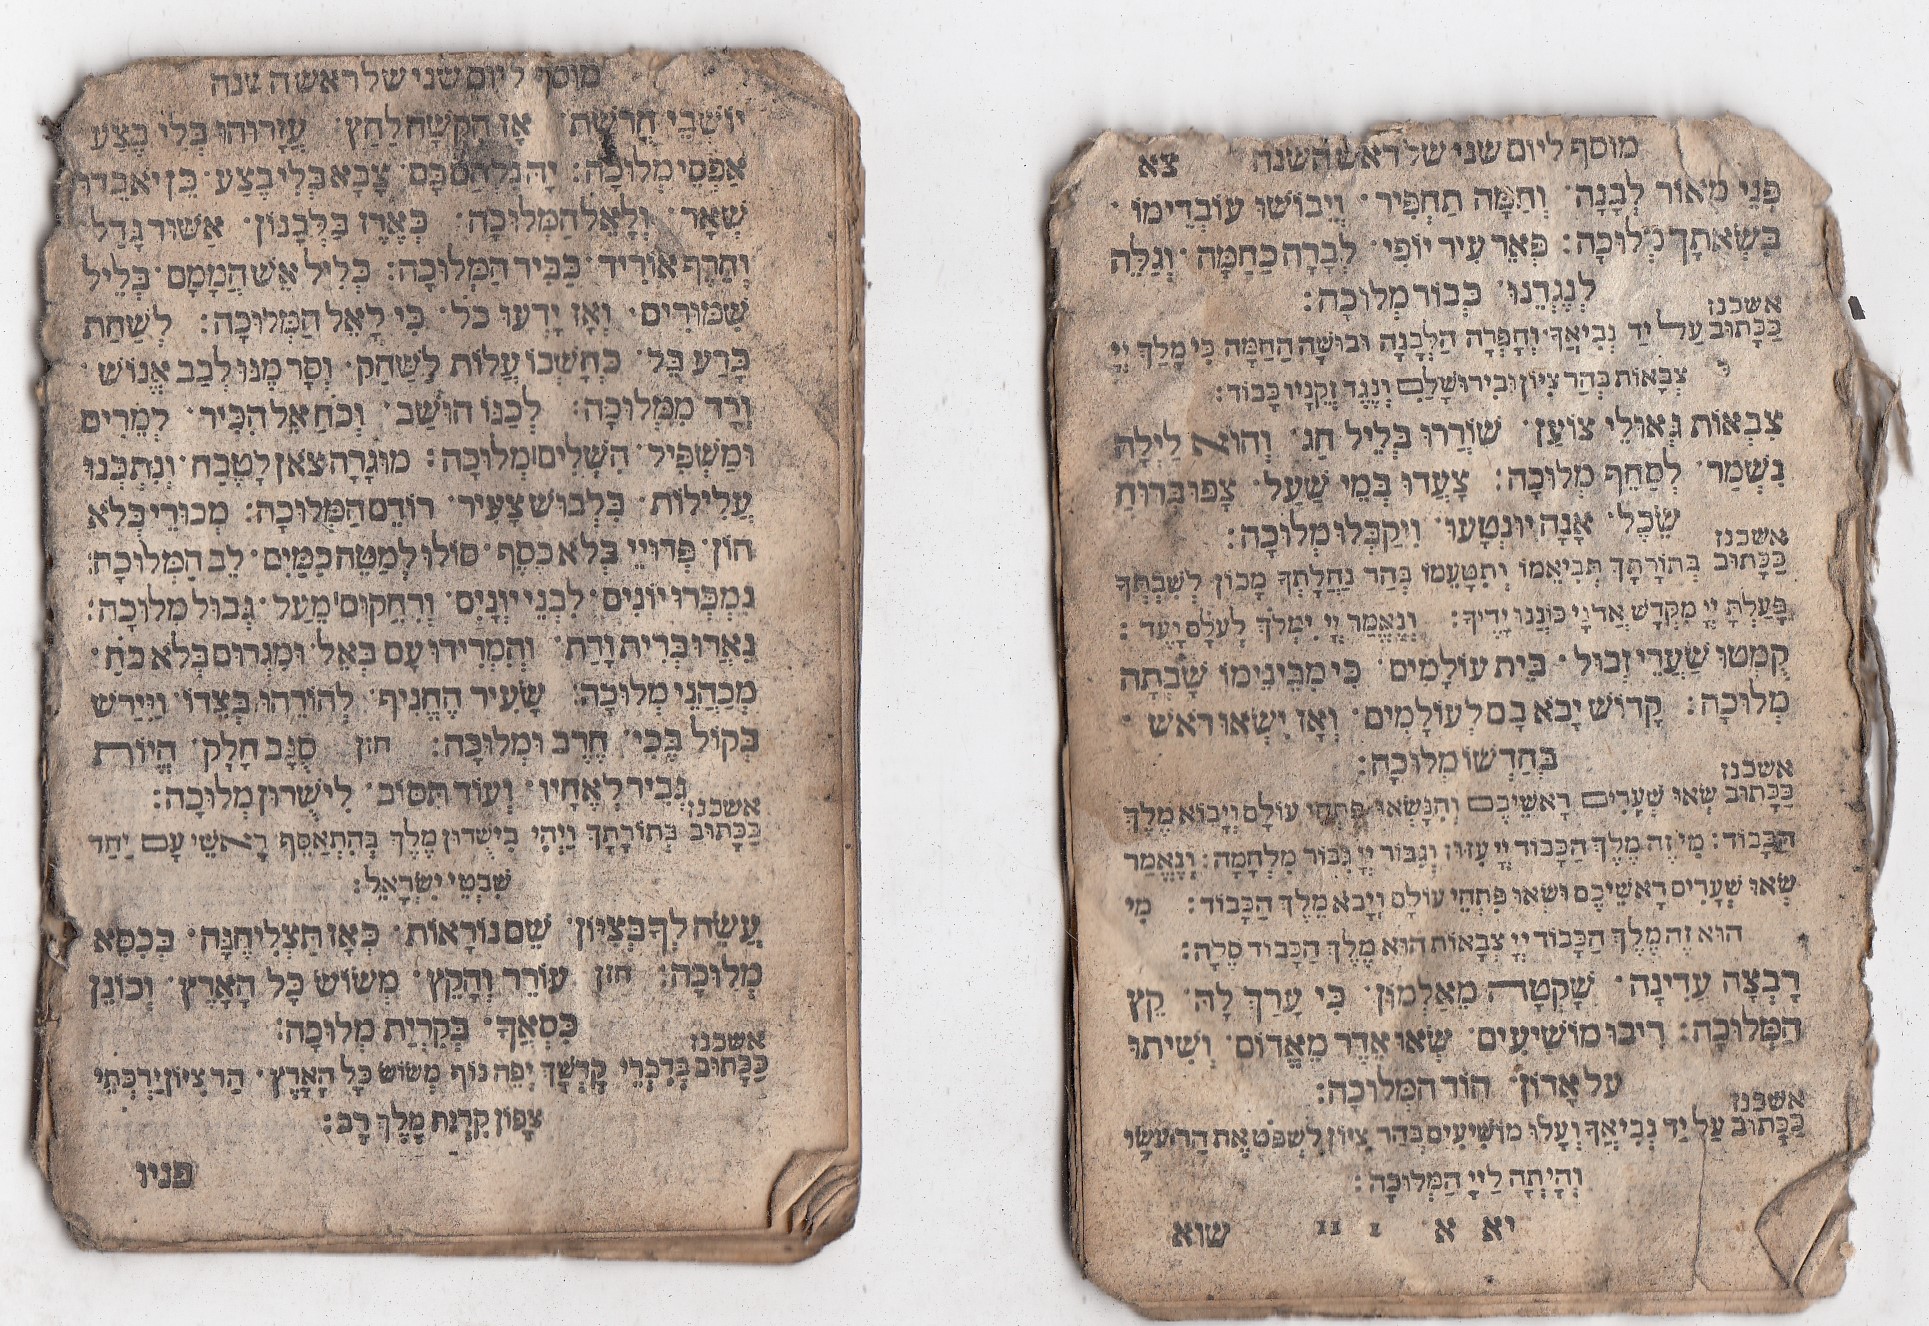 מוסף ליום שני של ראש השנה
יושבי חרשת· אז הקשה לחץ· עזרוהו בלי בצע
אפסי מלוכה: יה נלחם בם· צבא בלי בצע· כן יאבדו
שאר· ולאל המלוכה· כארז בלבנון· אשור גדל·
וחרף אוריד· כביר המלוכה: כליל אש הממם· בליל
שמורים· ואז ידעו כל· כי לאל המלוכה: לשחת
כרע בל· כחשבו עלות לשחק· וסר מנו לבב אנוש·
ורד ממלוכה: לכנו הושב· וכח אל הכיר· למרים
ומשפיל· השלים מלוכה: מוגרה צאן לטבח· ונתכנו
עלילות· בלבוש צעיר· רודם המלוכה: מכורי בלא
הון· פדויי בלא כסף· סולו למטה כמים· לב המלוכה:
נמכרו יונים· לבני יונים· ורחקום מעל· גבול מלוכה:
נארו ברית ודת· והמרידו עם באל· ומגרום בלא כח·
מכהני מלוכה: שעיר החניף· להורהו בצדו· ויירש
בקול בכי· חרב ומלוכה: חזן סגב חלק· היות
גביר לאחיו· ועוד תסוב· לישרון מלוכה:
אשכנז
ככתוב בתורתך ויהי בישרון מלך בהתאסף ראשי עם יחד
שבטי ישראל:
עשה לך בציון· שם נוראות· כאז תצליחנה· בכסא
מלוכה: חזן עורר והקץ· משוש כל הארץ· וכונן
כסאך· בקרית מלוכה:
אשכנז
ככתוב בדברי קדשך יפה נוף משוש כל הארץ· הר ציון ירכתי
צפון קרית מלך רב:
פניו
מוסף ליום שני של ראש השנה צא
פני מאור לבנה· וחמה תחפיר· ויבושו עובדימו·
בשאתך מלוכה: פאר עיר יופי· לברה כחמה· וגלה
לנגדנו· כבוד מלוכה:
אשכנז
ככתוב על יד נביאך· וחפרה הלבנה ובושה החמה כי מלך יי
צבאות בהר ציון ובירושלם ונגד זקניו כבוד:
צבאות גאולי צוען· שוררו בליל חג· והוא לילה
נשמר· לסחף מלוכה: צעדו במי שעל· צפו ברוח
שכל· אנה יונטעו· ויקבלו מלוכה:
אשכנז
ככתוב בתורתך תביאמו ותטעמו בהר נחלתך מכון לשבתך
פעלת יי מקדש אדני כוננו ידיך: ונאמר יי ימלך לעלם ועד:
קמטו שערי זבול· בית עולמים· כי מבינימו שבתה
מלוכה: קדוש יבא בם לעולמים· ואז ישאו ראש·
בחדשו מלוכה:
אשכנז
ככתוב שאו שערים ראשיכם והנשאו פתחי עולם ויבוא מלך
הכבוד: מי זה מלך הכבוד יי עזוז וגבור יי גבור מלחמה: ונאמר
שאו שערים ראשיכם ושאו פתחי עולם ויבא מלך הכבוד: מי
הוא זה מלך הכבוד יי צבאות הוא מלך הכבוד סלה:
רבצה עדינה· שקטה מאלמון· כי ערך לה· קץ
המלוכה: ריבו מושיעים· שאו אדר מאדום· ושיתו
על אדון· הוד המלוכה:
אשכנז
ככתוב על יד נביאך ועלו מושיעים בהר ציון לשפט את הר עשו
והיתה ליי המלוכה:
יא א 1 11 שוא